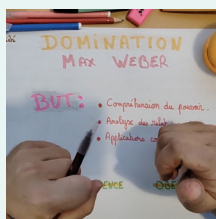 DOMINATION
MAX WEBER
BUT:
• Compréhension du pouvoir.
• Analyse des
• Applications